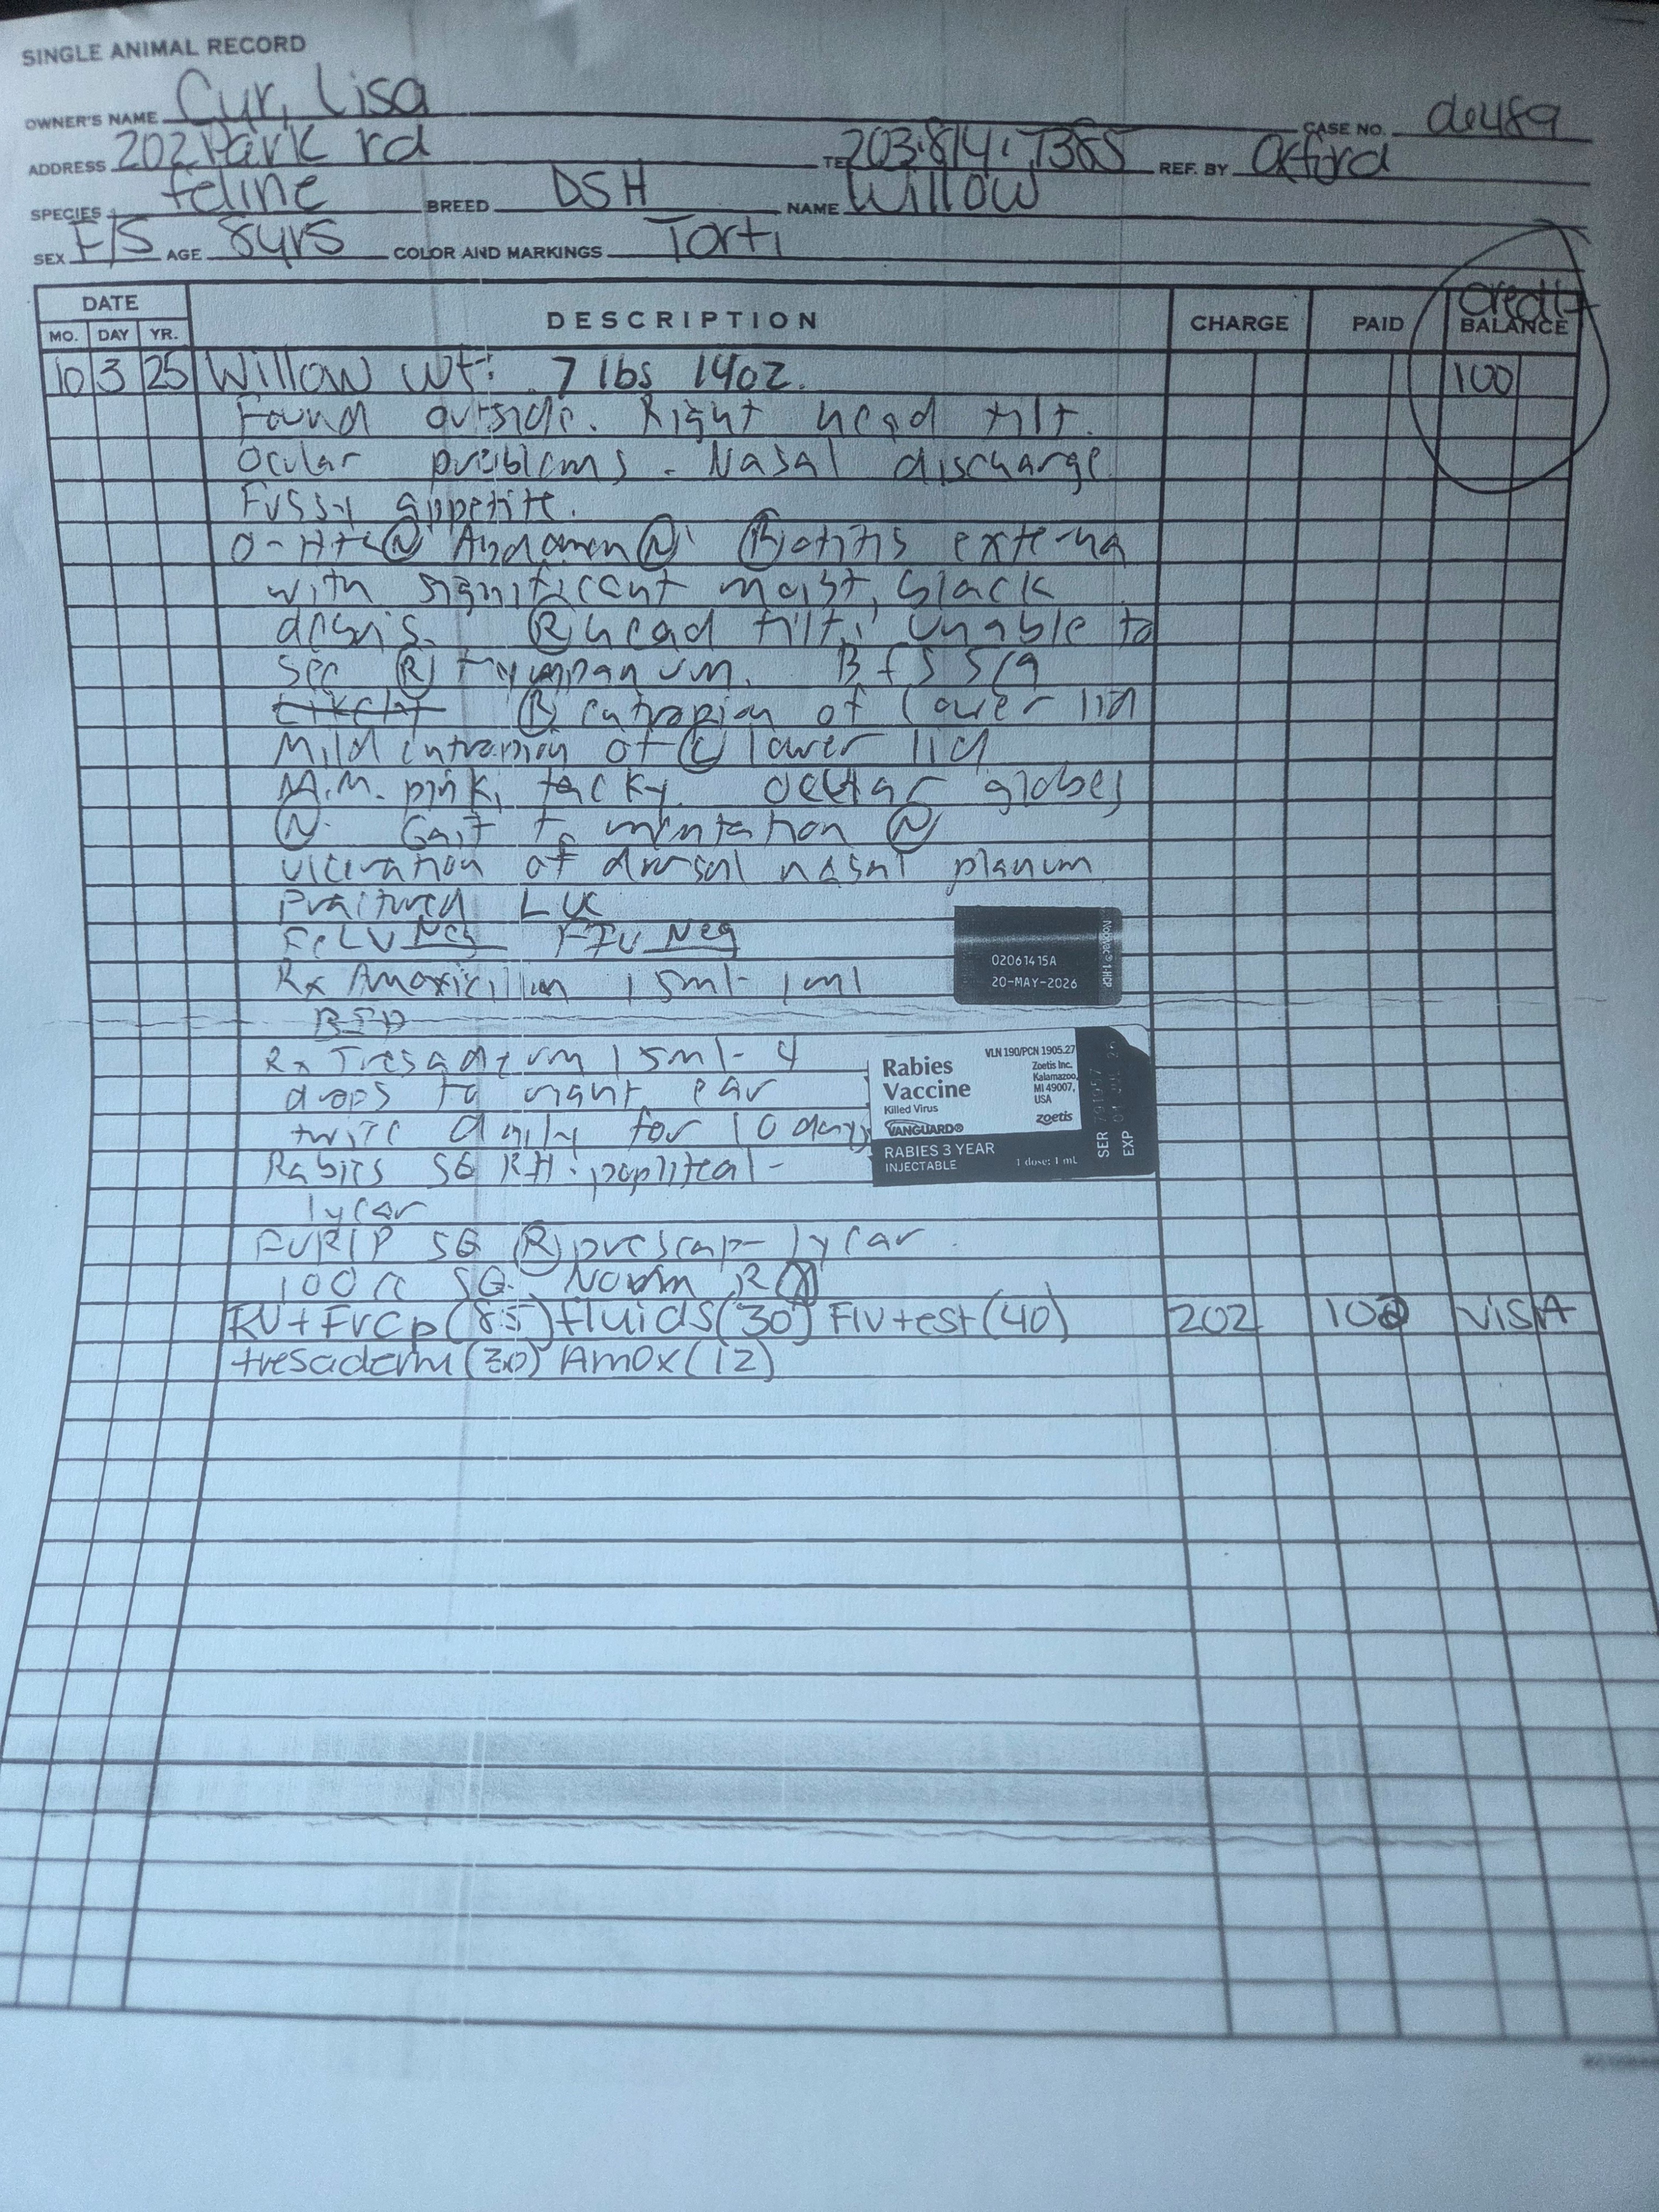 SINGLE ANIMAL RECORD
OWNER'S NAME Cyr, Lisa CASE NO.
ADDRESS 202 Park rd TE 203.814.7385 REF. BY Oxford
SPECIES feline BREED DSH NAME Willow
SEX F/S AGE 8yrs COLOR AND MARKINGS Torti
DATE DESCRIPTION CHARGE PAID credit BALANCE
MO. DAY YR.
10 3 25 Willow wt: 7 lbs 14oz. 100
Found outside. Right head tilt.
Ocular problems. Nasal discharge
Fussy appetite.
O-H+L (N) Abdomen (N) (R) otitis externa
with significant moist, black
debris. (R) head tilt, unable to
see (R) tympanum.
(R) entropion of lower lid
Mild entropion of (L) lower lid
M.M. pink, tacky. ocular globes
(N). Gait + mentation (N)
ulceration of dorsal nasal planum
Fractured LUC
FeLV Neg FIV Neg
Rx Amoxicillin 15ml - 1ml
02061415A
20-MAY-2026
Nobivac® 1-HCP
BID
Rx Tresaderm 15ml - 4
drops to right ear
twice daily for 10 days
Rabies Vaccine
Killed Virus
VANGUARD®
RABIES 3 YEAR
INJECTABLE
1 dose: 1 mL
VLN 190/PCN 1905.27
Zoetis Inc.
Kalamazoo,
MI 49007,
USA
zoetis
SER 791957
EXP
Rabies SQ RH. popliteal -
1year
FVRCP SQ (R) prescap - 1year
100cc SQ Norm R
RV + Frcp (85) fluids (30) FIV test (40) 202 102 VISA
tresaderm (30) Amox (12)